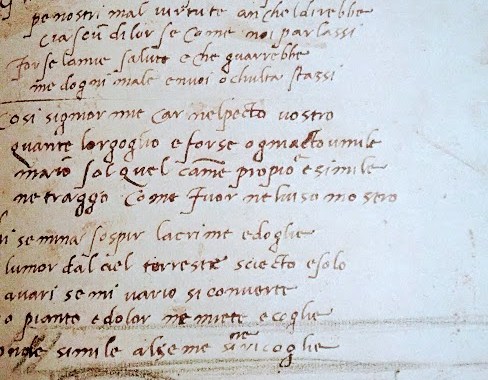 pe nostri mal virtute anchel direbbe
cia scū di lor se come noi parlassi
for se salute e che guarrebbe
me dogni male envoi ochulta stassi
osi signior mie car nelpecto vostro
quante lorgoglio e forse ogni acto umile
ma io sol quel came propio e simile
ne traggo come fuor neluiso mostro
i semina sospir lacrime e doglie
lumor dal ciel terreste sciecto e solo
a vari semi vario si converte
o pianto e dolor ne miete e coglie
simile al seme ricoglie